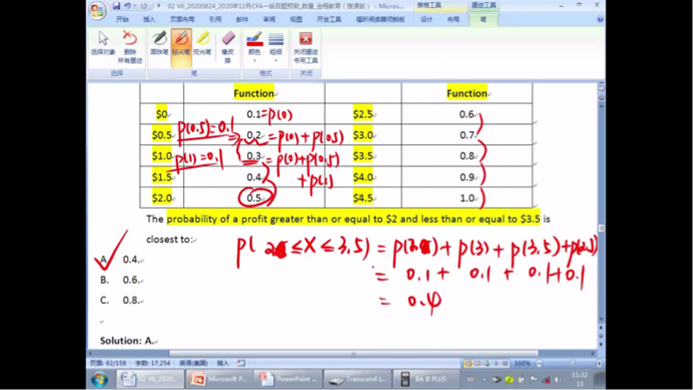 02 V6_20200824_2020年12月CFA一级百题预测_数量_金程教育 (授课版)
表格工具
墨迹工具
开始
插入
页面布局
引用
邮件
审阅
视图
开发工具
福昕阅读器领鲜版
设计
布局
笔
选择对象
删除所有墨迹
圆珠笔
毡尖笔
荧光笔
橡皮擦
颜色
粗细
关闭墨迹书写工具
选择
笔
格式
关闭
Function Function
$0 0.1 =p(0) $2.5 0.6
p(0.5)=0.1
$0.5 0.2 =p(0)+p(0.5) $3.0 0.7
$1.0 p(1)=0.1 0.3 =p(0)+p(0.5) $3.5 0.8
+p(1)
$1.5 0.4 $4.0 0.9
$2.0 0.5 $4.5 1.0
The probability of a profit greater than or equal to $2 and less than or equal to $3.5 is
closest to:
p(2 ≤ X ≤ 3.5) = p(2) + p(3) + p(3.5) + p(2.5)
A. 0.4.
= 0.1 + 0.1 + 0.1 + 0.1
B. 0.6.
= 0.4
C. 0.8.
Solution: A.
页面: 92/158
字数: 17,254
英语(美国)
插入
160%
02 V6_20200...
Microsoft PowerP...
PowerPoint ...
Transcend (...
BA II PLUS
11:32